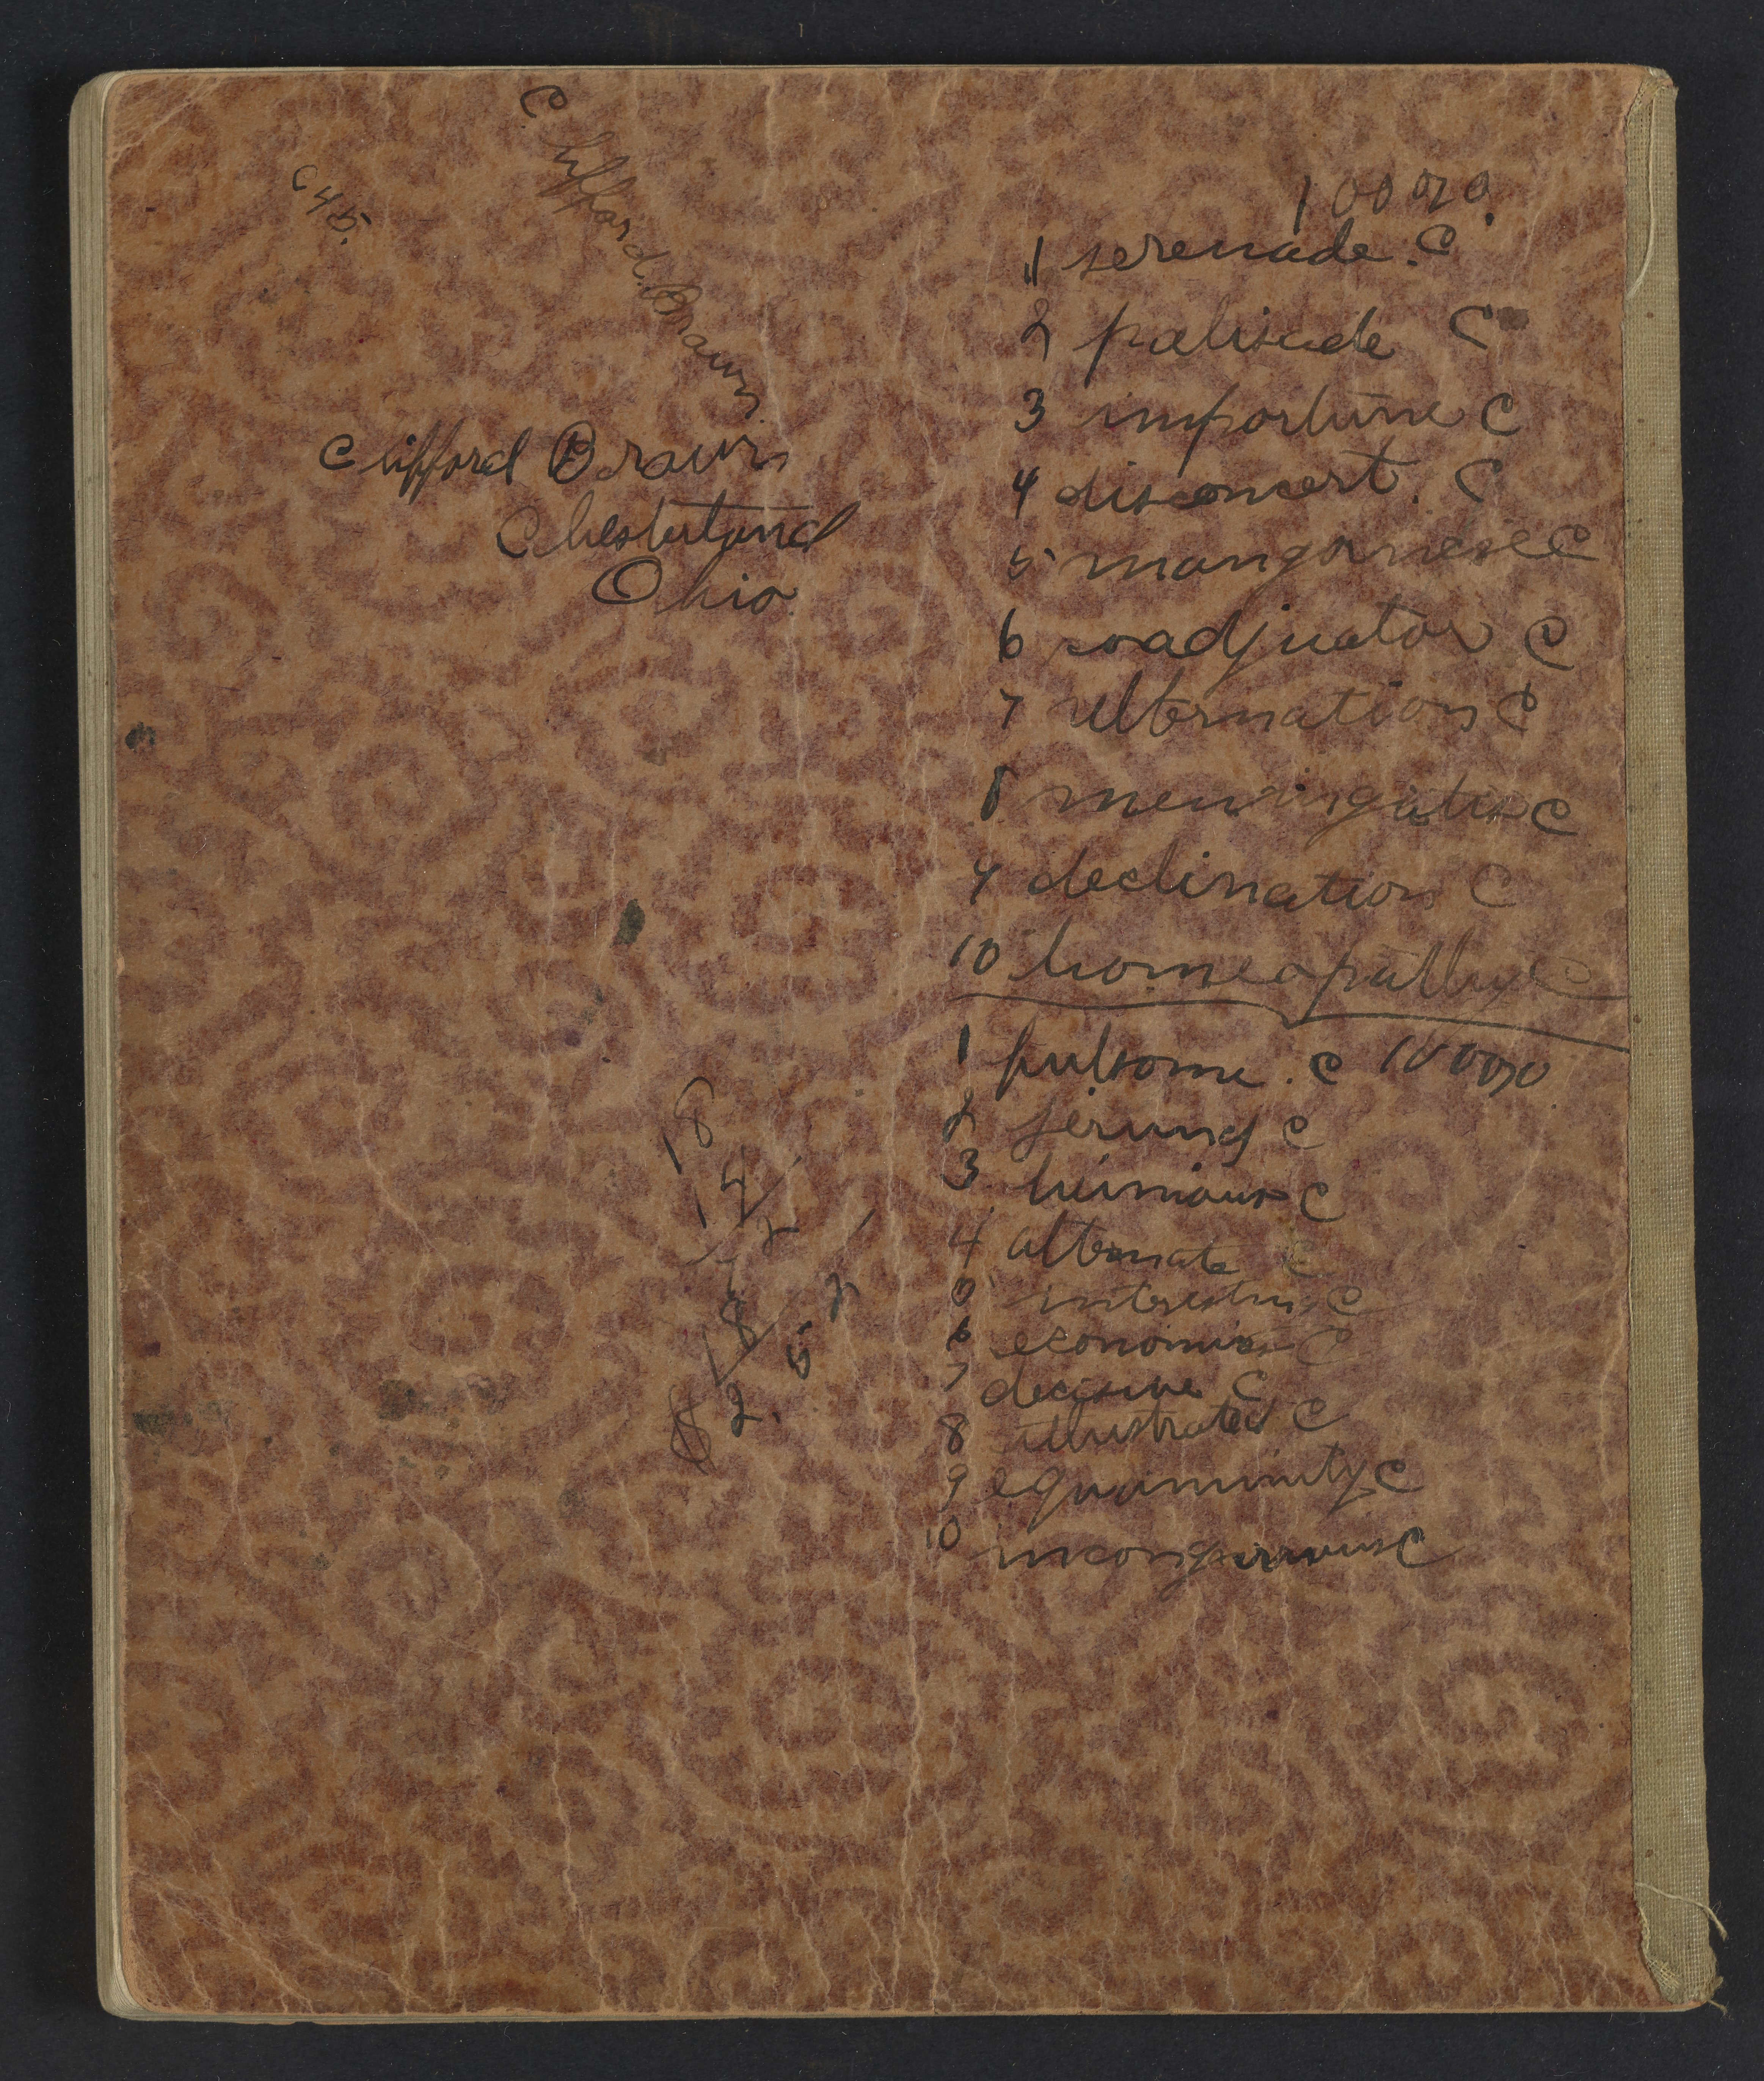 Clifford Brown
Clifford Brown
Chesterland
Ohio
100%
1 serenade. C
2 palisade C
3 importune C
4 disconcert. C
5 manganese C
6 coadjutor C
7 alternation C
8 meningitis C
9 declination C
10 homeopathy C
1 fulsome. C 100%
2 C
3 heinous C
4 alternate C
5 interesting C
6 economics C
7 decisive C
8 illustrated C
9 equanimity C
10 C
18
$2.